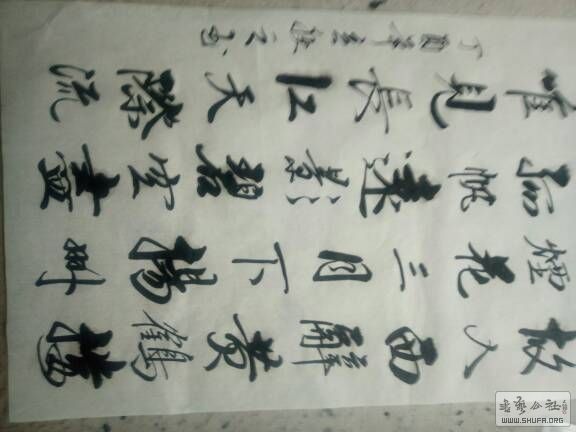 故人西辭黄鶴樓
煙花三月下揚州
孤帆遠影碧空盡
唯見長江天際流
丁酉年
书艺公社
WWW.SHUFA.ORG